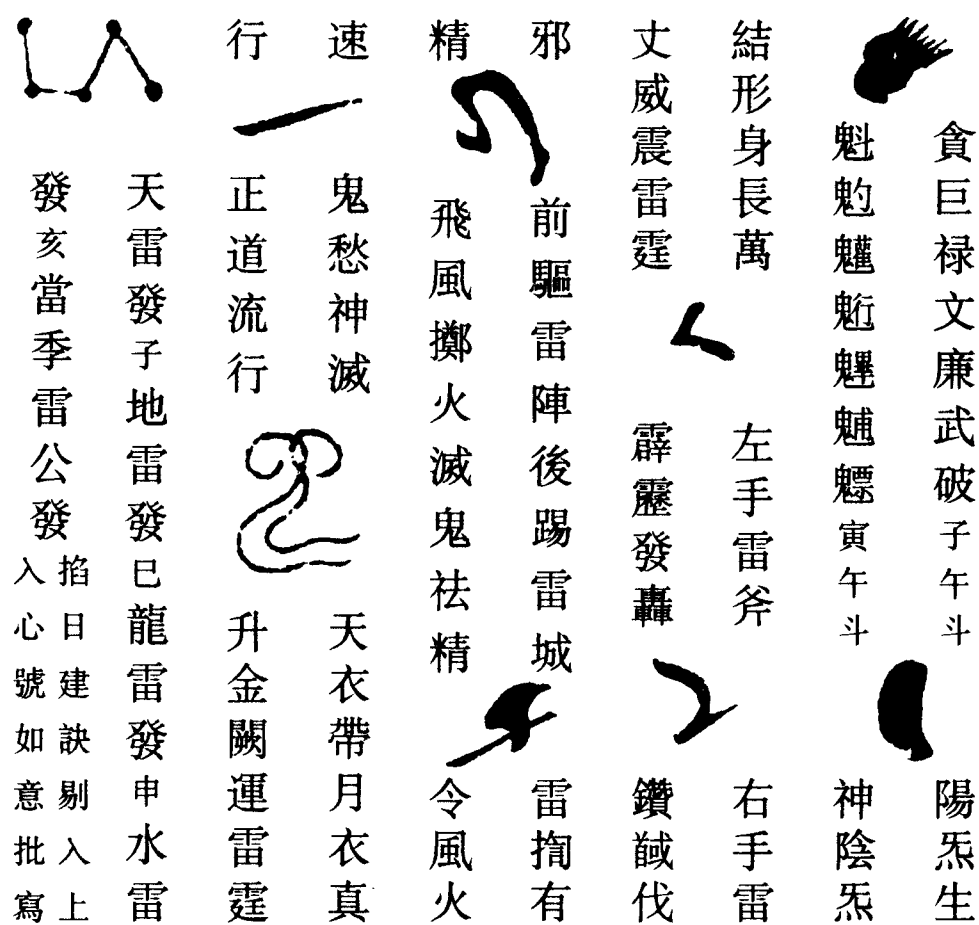 貪巨禄文廉武破子午斗
魁𩲃䰱䰢魓䰣魒寅午斗
陽炁生
神陰炁
結形身長萬
丈威震雷霆
左手雷斧
霹靂發轟
右手雷
鑽馘伐
邪
精
前驅雷陣後踢雷城
飛風擲火滅鬼祛精
雷有
令風火
速
行
鬼愁神滅
正道流行
天衣帶月衣真
升金闕運雷霆
天雷發子地雷發巳龍雷發申水雷
發亥當季雷公發
掐日建訣剔入上
入心號如意批寫